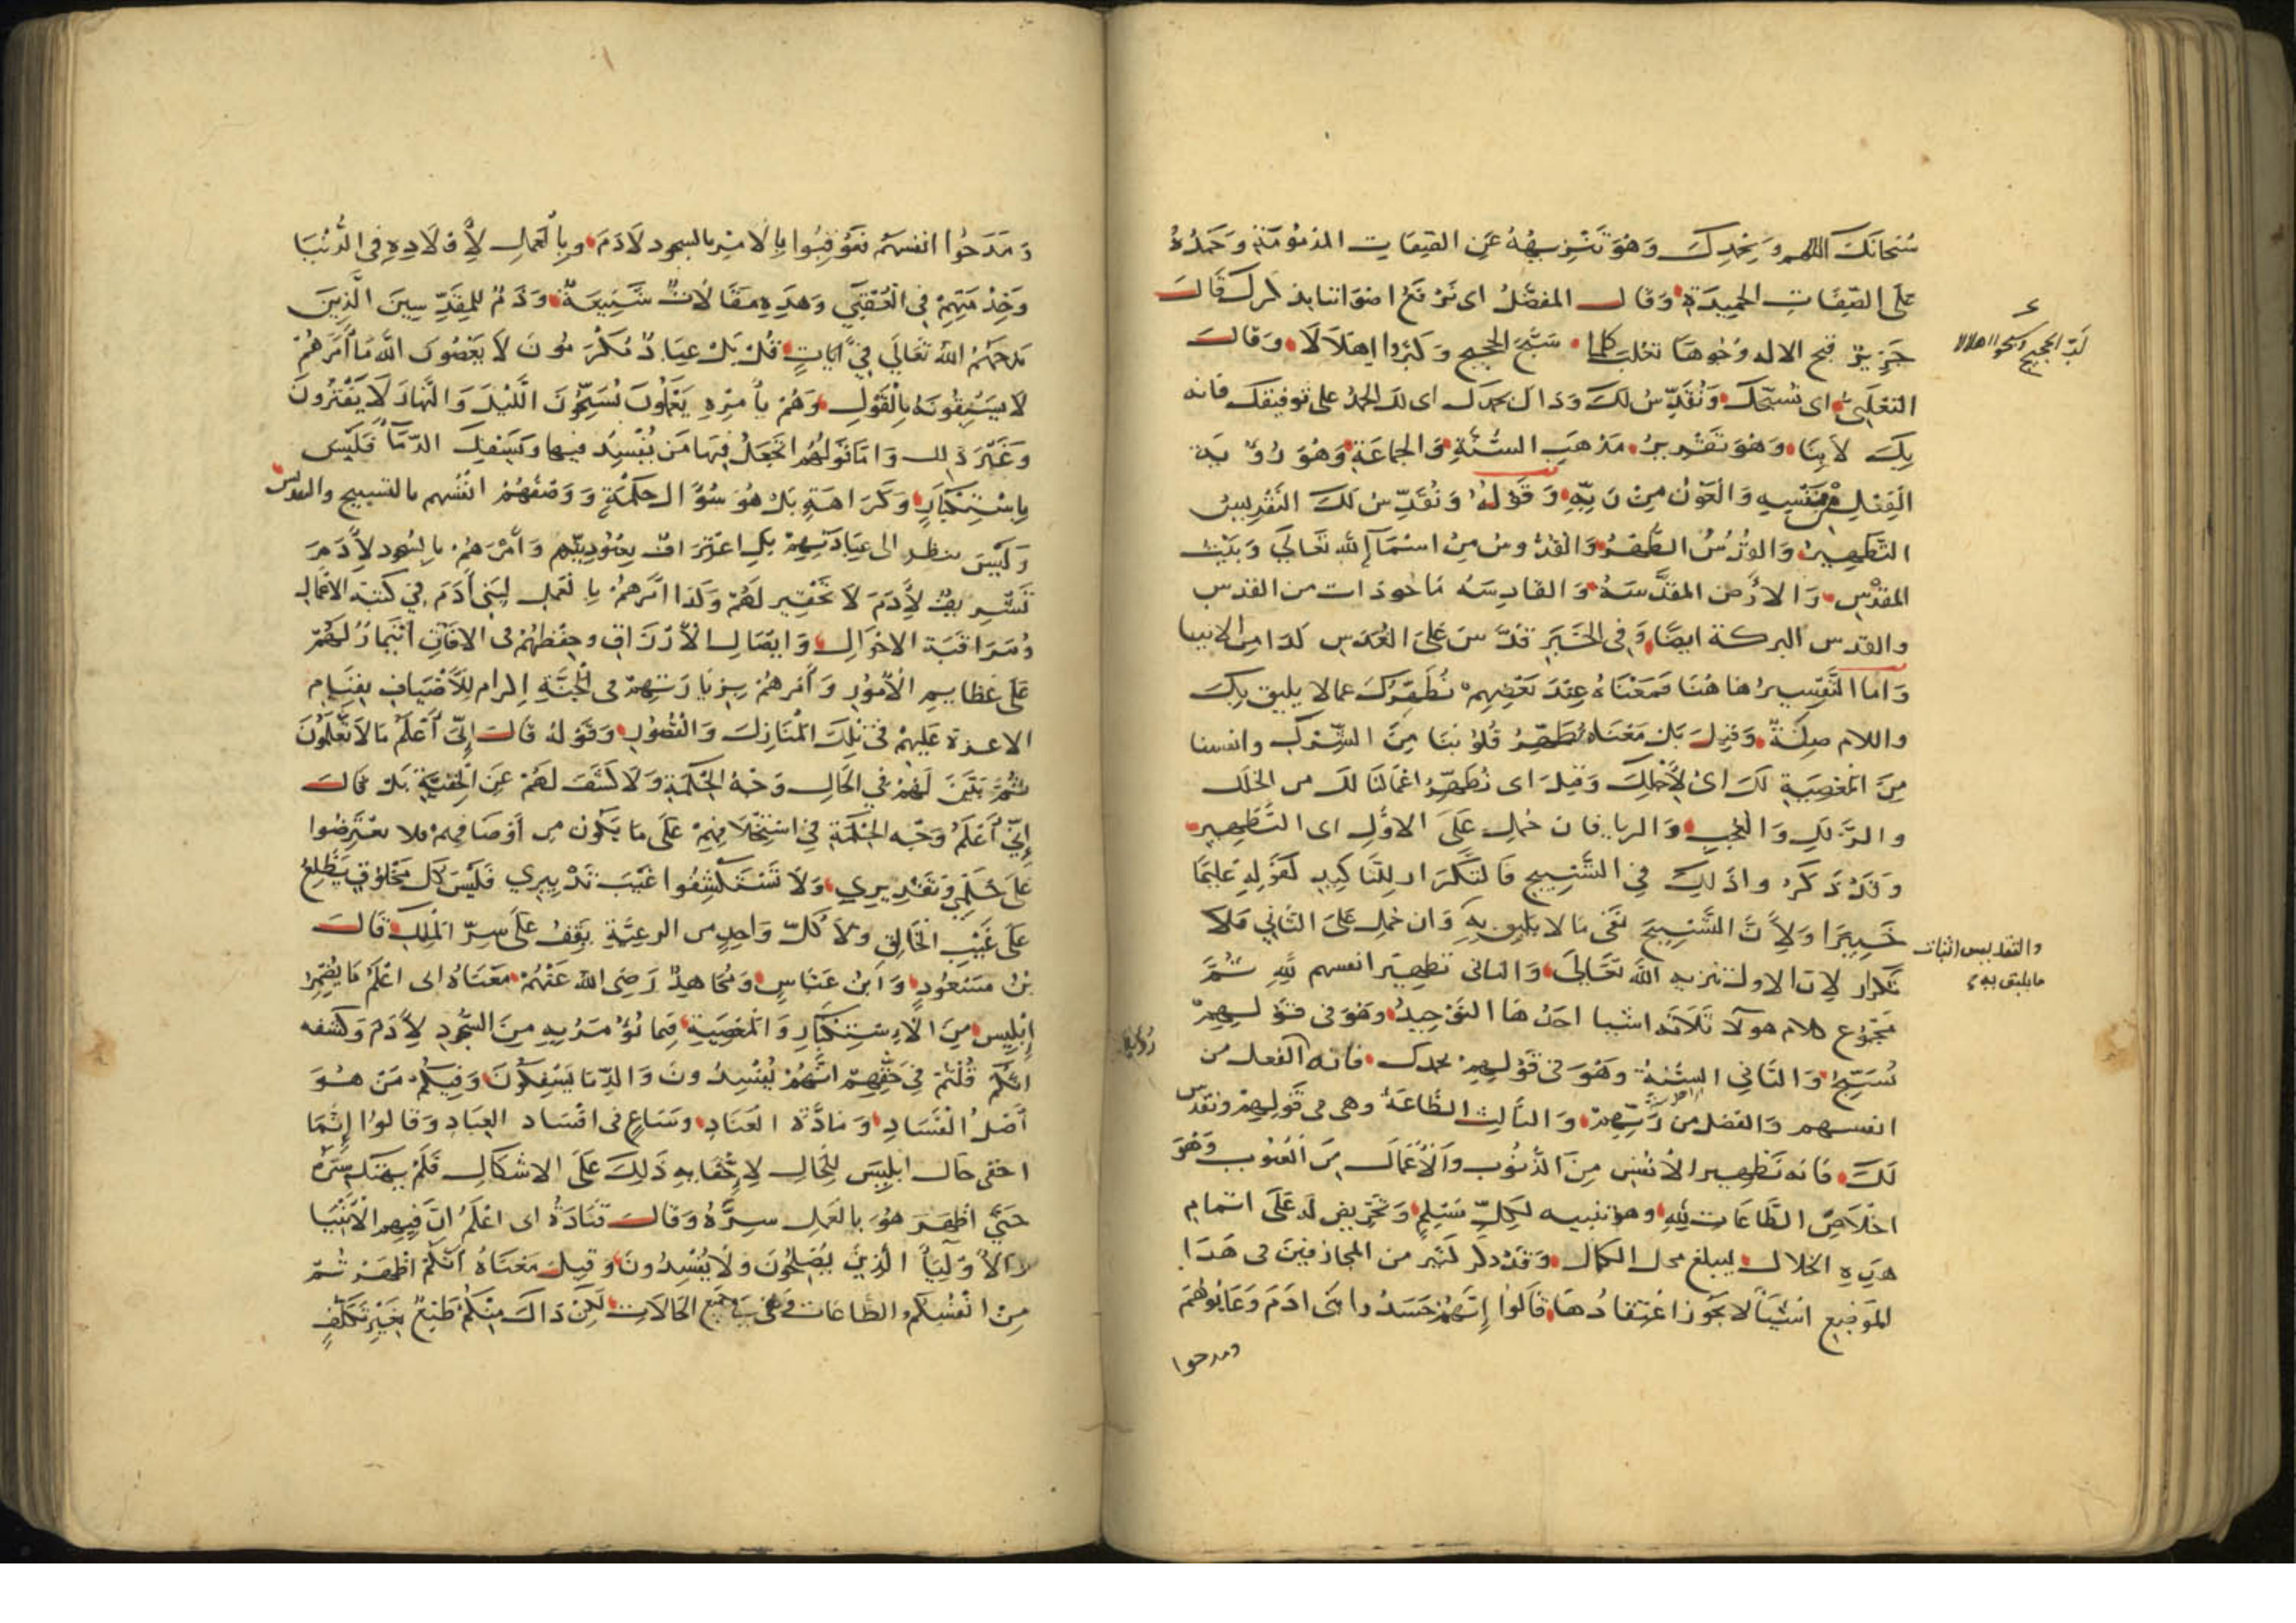 سُبْحَانَكَ اللهم وَبِحَمْدِكَ وَهُوَ تَنْزِيهُهُ عَنِ الصِّفَاتِ المَذْمُومَةِ وَحَمْدُهُ
عَلَى الصِّفَاتِ الحَمِيدَةِ وَقَالَ المفضَّلُ اى نَرْفَعُ اصْوَاتنا بذكرك قَالَ
جَرِيرٌ قبح الاله وُجُوهَ تَغْلِبَ كلما سَبَّحَ الحَجِيجُ وَكَبَّرُوا اِهْلَالًا وَقَالَ
لَبَّى الحجيج وسبحوا اهلالا
الثعْلَبِىُّ اى نُسَبِّحُكَ وَنُقَدِّسُ لَكَ وَذَاكَ بحمدك اى لك الحمدُ على توفيقك فانه
بِكَ لاَ بِنَا وَهُوَ تَقْرِيرُ مَذْهَبِ السُّنَّةِ وَالجَمَاعَةِ وَهُوَ رُؤْيَةُ
الفِعْلِ مِنْ نَفْسِهِ وَالعَوْنُ مِنْ رَبِّهِ وَقَوْلُهُ وَنُقَدِّسُ لَكَ التَّقْدِيسُ
التَّطْهِيرُ وَالقُدْسُ الطُّهْرُ وَالقُدُّوسُ مِنْ اسْمَآءِ اللهِ تَعَالَى وَبَيْتُ
المَقْدِسِ وَالاَرْضُ المُقَدَّسَةُ وَالقَادِسَةُ مَاخوذات من القدس
والقدس البركة ايضًا وَفِى الخَبَرِ قدَّسَ عَلَى العَدَسِ كَذَا من الانبيا
وَاما التَّفْسِيرُ هَاهُنَا فَمَعْنَاهُ عِنْدَ بَعْضِهِمْ نُطَهِّرُكَ عما لا يليق بِكَ
واللام صِلَةٌ وَقِيلَ بَلْ مَعْنَاهُ نُطَهِّرُ قُلُوبَنَا مِنَ الشِّرْكِ وانفسنا
مِنَ المَعْصِيَةِ لَكَ اىْ لِأَجْلِكَ وَقِيلَ اى نُطَهِّرُ اعْمَالَنَا لَكَ من الخلل
والزَّلَلِ وَالعُجْبِ وَالريا فان حُمِلَ عَلَى الاَوَّلِ اى التَّطْهِيرِ
وَقَدْ ذَكَرُوا ذَلِكَ فِى التَّسْبِيحِ فَالتَّكْرَارُ لِلتَّاكِيدِ كَقَوْلِهِ عَلِيمًا
خَبِيرًا وَلِأَنَّ التَّسْبِيحَ نَفْىُ مَا لا يَلِيقُ بِهِ وَان حُمِلَ عَلَى الثَّانِى فَلَا
والتقديس اثبات
ما يليق به
تكرار لِان الاول تنزيه اللهِ تَعَالَى وَالثانى تطهير انفسهم لِلَّهِ ثُمَّ
مَجْمُوعُ كلام هولآ ثَلَاثَة اشيا احَدُهَا التَّوْحِيدُ وَهُوَ فى قَوْلِهِمْ
نُسَبِّحُ وَالثَّانِى السُّنَّةُ وَهُوَ فى قَوْلِهِمْ بحمدك فانه رؤية الفعل من
انفسهم وَالفضل من رَبِّهِمْ وَالثَّالِثُ الطَّاعَةُ وهى فى قَوْلِهِمْ ونقدس
لَكَ فَانه تَطْهِير الاَنْفُسِ مِنَ الذُّنُوبِ وَالاَعْمَالِ مِنَ العُيُوبِ وَهُوَ
اخْلَاصُ الطَّاعَاتِ لِلَّهِ وهو تنبيه لِكُلِّ مُسْلِمٍ وَتَحْرِيض له عَلَى اتمام
هَذِهِ الخلال ليبلغ محل الكمال وَقَدْ ذكر كثير من المجازفين فى هَذَا
المَوْضِعِ اَشْيَآ لَا يَجُوزُ اعْتِقَادُهَا قَالُوا اِنَّهُمْ حَسَدُوا بنى ادَمَ وَعَابُوهُمْ
ومدحوا
وَمَدَحُوا انفسَهُمْ فَعُوقِبُوا بِالاَمْرِ بِالسجود لِآدَمَ وبِالْعَمَلِ لِأَوْلَادِهِ فِى الدُّنْيَا
وَخِدْمَتِهِمْ فِى العُقْبَى وَهَذِهِ مَقَالَاتٌ شَنِيعَةٌ وَذَمٌّ للمُقَدِّسِينَ الَّذِينَ
مَدَحَهُمُ اللهُ تَعَالَى فِى آيَاتٍ قُلْ بَلْ عِبَادٌ مُكْرَمُونَ لاَ يَعْصُونَ اللهَ مَا أَمَرَهُمْ
لاَ يَسْبِقُونَهُ بِالْقَوْلِ وَهُمْ بِأَمْرِهِ يَعْمَلُونَ يُسَبِّحُونَ اللَّيْلَ وَالنَّهَارَ لَا يَفْتُرُونَ
وَغَيْر ذلك وَامَا قَوْلُهُم اتَجْعَلُ فِيهَا مَن يُفْسِدُ فيها وَيَسْفِكُ الدِّمَآ فَلَيْسَ
بِاسْتِنْكَارٍ وَكَرَاهَةٍ بَلْ هُوَ سُوَالُ حِكْمَةٍ وَوَصْفُهُمْ انْفُسَهم بالتسبيح والتقديس
وَلَيْسَ بنظر الى عِبَادَتِهِمْ بَلِ اعْتِرَافٌ بِعُبُودِيَّتِهِم وَأَمْرُهُمْ بِالسُّجُودِ لِآدَمَ
تَشْرِيفٌ لِآدَمَ لَا تَحْقِير لَهُمْ وَكَذَا امْرُهُمْ بِالعَمَلِ لِبَنِى آدَمَ فِى كتبة الاعمال
وَمُرَاقَبَة الاَحْوَالِ وَايصَال الاَرْزَاقِ وحِفْظهُمْ فى الافَاتِ ائْتِمَارٌ لَهُمْ
عَلَى عَظَايِمِ الاُمُورِ وَأَمْرُهُمْ بِزِيَارَتِهِمْ فِى الجَنَّةِ اكرام لِلْأَضْيَافِ بِقِيَامِ
الاعزة عَلَيْهِمْ فِى تِلْكَ المَنَازِلِ وَالقُصُورِ وَقَوْلهُ قَالَ إِنِّى أَعْلَمُ مَا لَا تَعْلَمُونَ
ثُمَّ بَيَّنَ لَهُمْ فِى الحَالِ وَجْهَ الحِكْمَةِ وَلَا كَشَفَ لَهُمْ عَنِ الخَفِيَّةِ بَلْ قَالَ
إِنِّى أَعْلَمُ وَجْهَ الحِكْمَةِ فِى اسْتِخْلَافِهِمْ عَلَى مَا يَكُونُ مِن أَوْصَافِهِمْ فلا تعْتَرِضُوا
عَلَى حُكْمِى وَتَقْدِيرِى وَلَا تَسْتَكْشِفُوا غَيْبَ تَدْبِيرِي فَلَيْسَ كل مَخْلُوقٍ يَطَّلِعُ
عَلَى غَيْبِ الخَالِقِ وَلَا كُلُّ وَاحِدٍ من الرعِيَّةِ يَقِفُ عَلَى سِرِّ المَلِكِ قَالَ
بْنُ مَسْعُودٍ وَابْنُ عَبَّاسٍ وَمُجَاهِدٌ رَضِىَ اللهُ عَنْهُمْ مَعْنَاهُ انى اعْلَمُ مَا يُضْمِرُ
إِبْلِيس مِنَ الْاِسْتِكْبَارِ وَالمَعْصِيَةِ فِيمَا نُؤْمَرُ بِهِ مِنَ السُّجُودِ لِآدَمَ وَكشفه
انكم قُلْتُمْ فِى حَقِّهِمْ انَّهُمْ يُفْسِدُونَ وَالدِّمَا يَسْفِكُونَ وَفِيكُمْ مَنْ هُوَ
أَصْلُ الْفَسَادِ وَمَادَّة العِنَادِ وَسَاعٍ فى افْسَاد العِبَادِ وَقَالُوا إِنَّمَا
اخفى حَالَ ابْلِيسَ لِلْحَالِ لِاِخْفَايِهِ ذَلِكَ عَلَى الاشكَالِ فَلَمْ يهتك سِتْرَهُ
حَتَّى اظْهَرَ هُوَ بِالعَمَلِ سِرَّهُ وَقَالَ قَتَادَةُ اى اعْلَمُ انَّ فِيهِم الاَنْبِيَا
وَالاَوْلِيَآ الَّذِينَ يُصْلِحُونَ وَلَا يُفْسِدُونَ وَقِيلَ مَعْنَاهُ انكُمْ اظْهَرْتُمْ
مِنْ انْفُسِكُم الطَّاعَات فِى جَمِيعِ الحَالَاتِ لَكِنْ ذَاكَ مِنْكُمْ طَبْعٌ بِغَيْرِ تَكَلُّفٍ